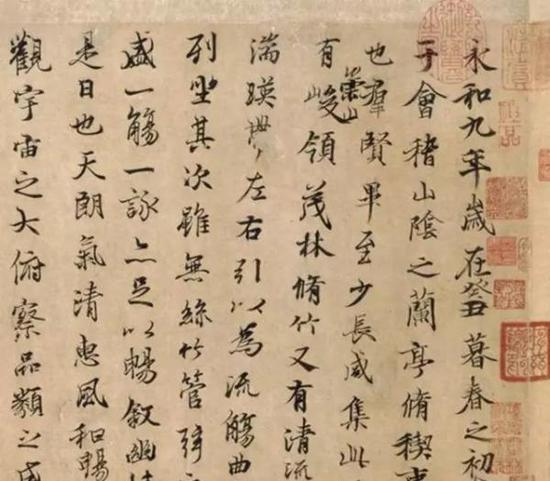 永和九年歲在癸丑暮春之初
于會稽山陰之蘭亭脩稧事
也羣賢畢至少長咸集此
有崇山峻領茂林脩竹又有清流
湍暎帶左右引以為流觴曲
列坐其次雖無絲竹管弦
盛一觴一詠亦足以暢敘幽情
是日也天朗氣清惠風和暢
觀宇宙之大俯察品類之盛